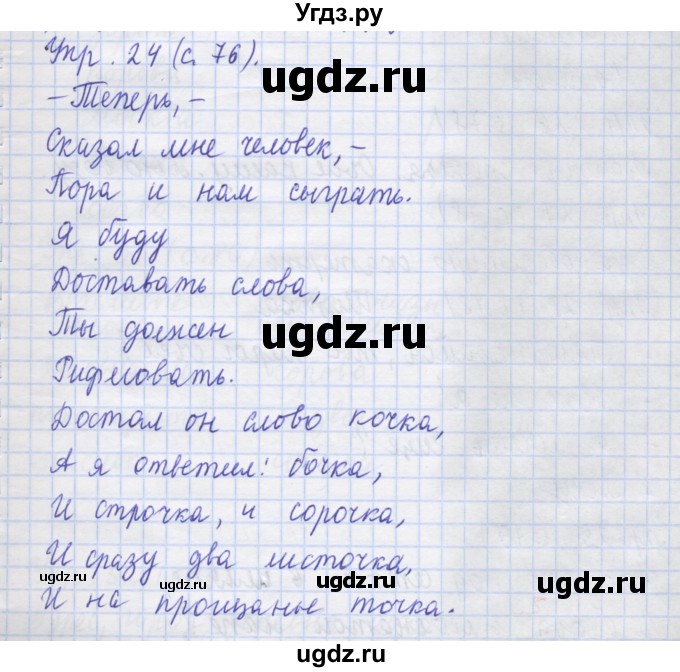 Угдз.ру
Упр. 24 (с. 76).
ugdz.ru
– Теперь, –
ugdz.ru
Сказал мне человек, –
Пора и нам сыграть.
ugdz.ru
Я буду
Доставать слова,
ugdz.ru
Ты должен
ugdz.ru
Рифмовать.
Достал он слово кочка,
А я ответил: бочка,
ugdz.ru
И строчка, и сорочка,
И сразу два листочка,
ugdz.ru ugdz.ru ugdz.ru
И на прощанье точка.
ugdz.ru